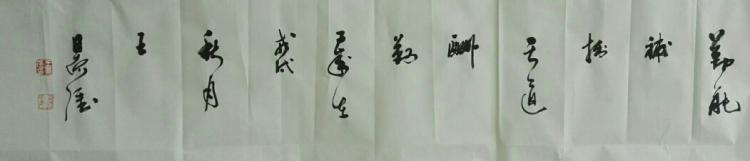 勤能
補
拙
天道
酬
勤
生
戊戌
秋月
王